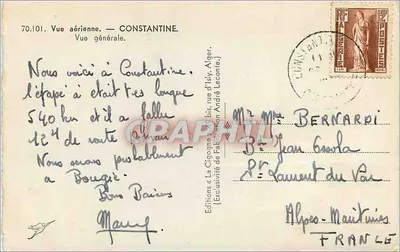 70.101. Vue aérienne. — CONSTANTINE.
Vue générale.
Nous voici à Constantine.
l'étape a était très longue
540 km et il a fallu
12h de route
Nous irons probablement
à Bougie.
Bons Baisers
CPARAMA.COM
Editions « La Cigogne », bis, rue d'Isly, Alger.
Exclusivité de Fabrication André Leconte.
CONSTANT
Mr Mme BERNARDI
Bd Jean Ossola
St Laurent du Var
Alpes-Maritimes
FRANCE